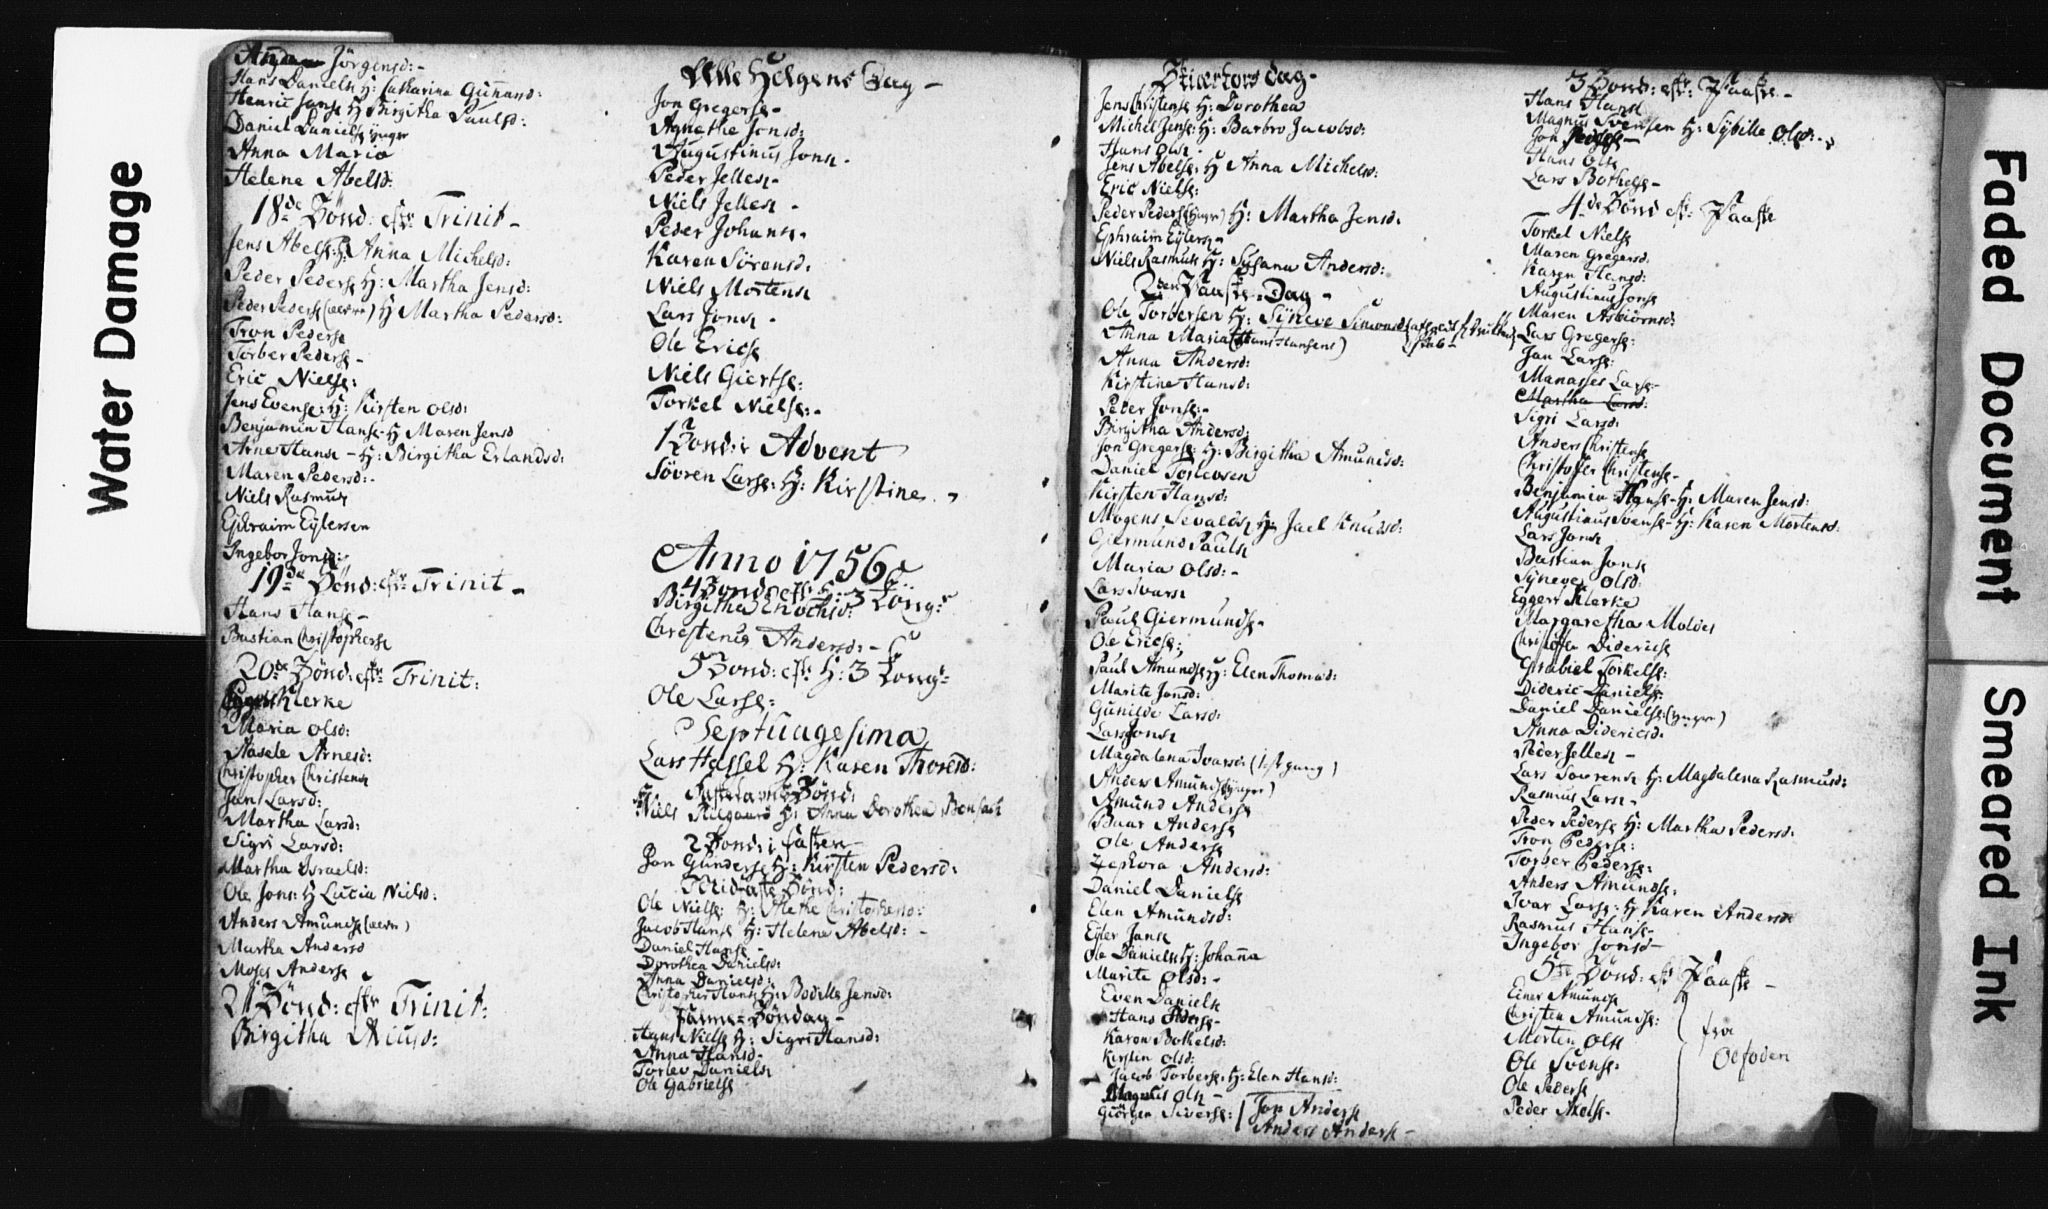 Water Damage
Jörgensd:-
Hans Danielsn H: Catharina Gunnarsd:
Henric Jansn H Birgitha Paulsd:
Daniel Danielsn ÿnger
Anna Maria
Helene Abelsd:
18de Sönd: eftr Trinit-
Jens Abelsn: H: Anna Michelsd:
Peder Pedersn H: Martha Jensd:
Peder Pedersn (ældre) H Martha Pedersd:
Tron Pedersn
Torber Pedersn-
Eric Nielsn:
Jens Evensn: H: Kirsten Olsd:
Benjamin Hansn- H Maren Jensd
Arne Hansn - H: Birgitha Erlandsd:
Maren Pedersd:-
Niels Rasmusn
Ephraim Eylersen
Ingebor Jonsd:-
19de Sönd: eftr Trinit-
Hans Hansn-
Bastian Christophersn
20de Sönd: eftr Trinit:
Eggert Klerke
Maria Olsd:
Aasele Arnesd:
Christopher Christensn
Jan Larsd:
Martha Larsd:
Sigri Larsd:
Martha Israelsd:
Ole Jons: H Lucia Nielsd:
Anders Amundsn (ældre)
Martha Andersd
Moses Andersn
21 Sönd: eftr Trinit:
Birgitha Nilsd:
Alle Helgens Dag-
Jon Gregersn-
Agnethe Jonsd:
Augustinus Jonsn-
Peder Jellesn-
Niels Jellesn-
Peder Johansn-
Karen Sörensd:
Niels Mortensn
Lars Jonsn-
Ole Ericsn
Niels Giertsn:
Torkel Nielsn:-
1 Sönd: i Advent
Sövren Larsn: H: Kirstine
Anno 1756
4 Sönd: eftr H: 3 Kong:
Birgitha Enochsd:
Christenus Andersd:-
5 Sönd: eftr H: 3 Kong:
Ole Larsn:
Septuagesima
Lars Hassel H: Karen Thoresd:
Fastelavns Sönd:
Niels H: Anna Dorothea
2 Sönd: i Fasten
Jon Gundersn H: Kirsten Pedersd:
Midfaste Sönd:
Ole Nielsn: H: Alethe Christophersd:
Jacob Hansn H: Helena Abelsd:-
Daniel Hansn-
Dorothea Danielsd:
Anna Danielsd:
Christopher Hansn H: Bodilla Jensd:
Palme-Söndag-
Hans Nielsn H: Sigri Hansd:
Anna Hansd-
Torlev Danielsn
Ole Gabrielsn
Skiertorsdag-
Jens Christensn H: Dorothea
Michel Jensn: H: Barbro Jacobsd:
Hans Olsn-
Jens Abelsn: H Anna Michelsd:
Eric Nielsn:
Peder Pedersn (ÿngre) H: Martha Jensd:
Ephraim Eylersn-
Niels Rasmusn H: Susana Andersd:
2den Paaske-Dag-
Ole Torbersen H: Syneve Simonsd
Anna Maria (Hans Hansens)
Anna Andersd:
Kirstine Hansd:
Peder Jonsn:-
Birgitha Andersd:
Jon Gregersn: H: Birgitha Amundsd:
Daniel Torlevsen
Kirsten Hansd:
Mogens Sevaldsn H: Jael Knudsd:
Giermund Paulsn
Maria Olsd:-
Lars Ivarsn
Paul Giermundsn-
Ole Ericsn:
Paul Amundsn H: Elen Thomasd:
Marite Jonsd:
Gunilde Larsd:
Lars Jonsn
Magdalena Ivarsd: (1ste gang)
Anders Amundsn (ÿnger)
Amund Andersn
Baar Andersn
Ole Andersn
Zephora Andersd:
Daniel Danielsn
Elen Amundsd:
Eyler Jansn
Ole Danielsn H: Johanna
Marite Olsd:-
Even Danielsn
Hans Pedersn-
Karen Bothelsd:
Kirsten Olsd:
Jacob Torbersn: H: Elen Hansd:
Magnus Olsn-
Giörgen Siversn:
Jon Andersn
Anders Andersn-
3 Sönd: eftr: Paaske-
Hans Hansn
Magnus Svensen H: Sybilla Olsd:
Jon
Hans Olsn
Lars Bothelsn-
4de Sönd eftr: Paaske
Torkel Nielsn
Maren Gregersd:
Karen Hansd:
Augustinus Jonsn
Maren Asbiörnsd:
Lars Gregersn:
Jan Larsn:
Manasses Larsn-
Martha Larsd:
Sigri Larsd:
Anders Christensn
Christofer Christensn-
Benjamin Hansn- H: Maren Jensd:
Augustinus Svensn- H: Karen Mortensd:
Lars Jonsn
Bastian Jonsn
Syneve Olsd:
Eggert Klerke
Margaretha Moldes
Christoffer Didericsn
Gabriel Torkelsn:
Dideric Danielsn:
Daniel Danielsn: (ÿngre)
Anna Didericsd:
Peder Jellesn-
Lars Sovrensn H: Magdalena Rasmusd:
Rasmus Larsn-
Peder Pedersn H: Martha Pedersd:
Tron Pedersn:
Torber Pedersn:
Anders Amundsn:
Ivar Larsn: H Karen Andersd:
Rasmus Hansn-
Ingebor Jonsd-
5te Sönd: eftr Paaske-
Einer Amundsn
Christen Amundsn:
Morten Olsn
Ole Svensn:
Ole Pedersn
Peder Axelsn-
fra
Oefoden
Faded Document
Smeared Ink